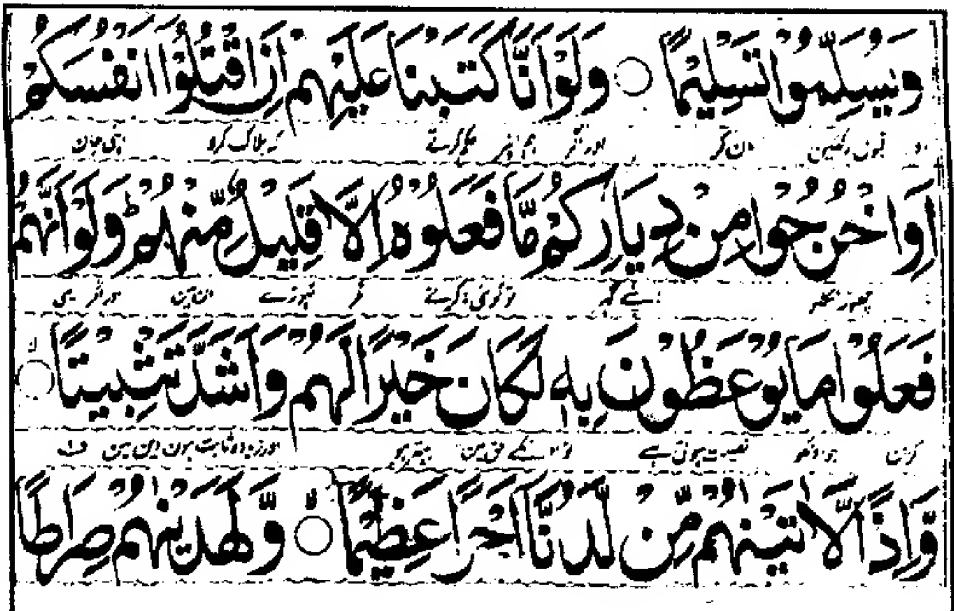 وَيُسَلِّمُوْا تَسْلِيْمًا ○ وَلَوْ اَنَّا كَتَبْنَا عَلَيْهِمْ اَنِ اقْتُلُوْا اَنْفُسَكُمْ
اور قبول رکھین مان کر اور اگر ہم اونپر حکم کرتے کہ ہلاک کرو اپنی جان
اَوِ اخْرُجُوْا مِنْ دِيَارِكُمْ مَّا فَعَلُوْهُ اِلَّا قَلِيْلٌ مِّنْهُمْ ؕ وَلَوْ اَنَّهُمْ
چھوڑ نکلو اپنے گھر تو کوئی نہ کرتے مگر تھوڑے ان مین اور اگر یہی
فَعَلُوْا مَا يُوْعَظُوْنَ بِهٖ لَكَانَ خَيْرًا لَّهُمْ وَاَشَدَّ تَثْبِيْتًا ○ۙ
کرین جو انکو نصیحت ہوتی ہے تو انکے حق مین بہتر ہو اور زیادہ ثابت ہون دین مین ف
وَّاِذًا لَّاٰتَيْنٰهُمْ مِّنْ لَّدُنَّا اَجْرًا عَظِيْمًا ○ۙ وَّلَهَدَيْنٰهُمْ صِرَاطًا